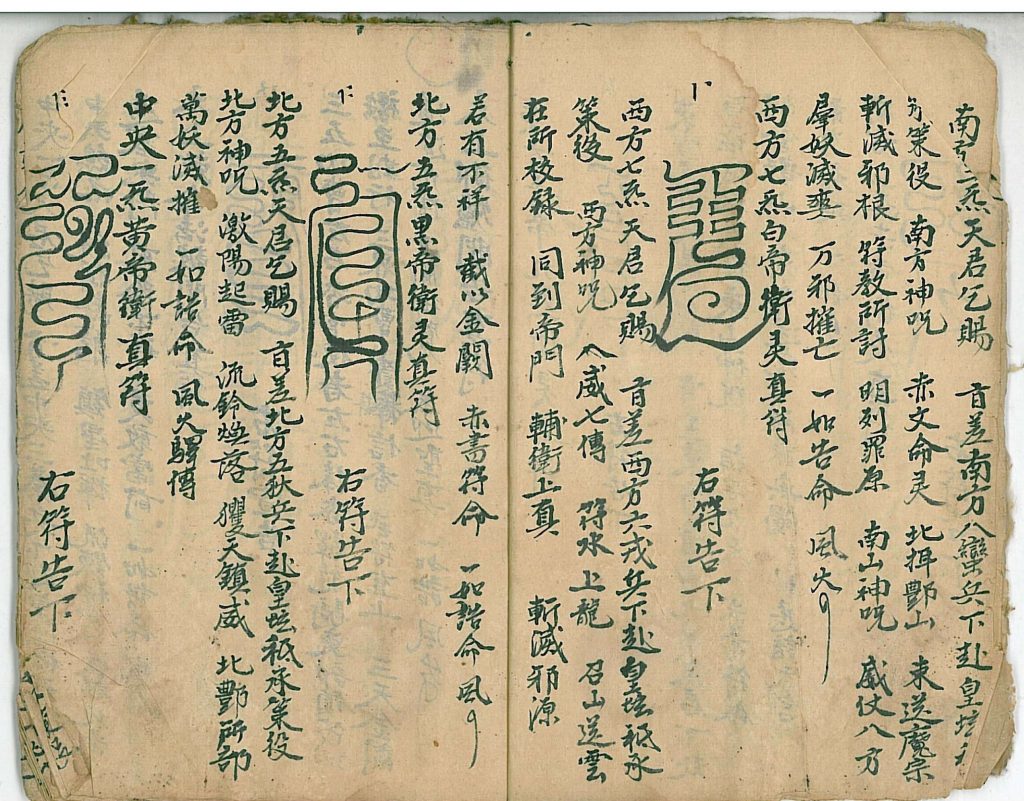 南方三炁天君乞賜 首差南方八蠻兵下赴皇壇
承策役 南方神咒 赤文命灵 北揖酆山 束送魔宗
斬滅邪根 符教所討 明列罪原 南山神咒 威仗八方
羣妖滅爽 万邪摧亡 一如告命 風火
西方七炁白帝衛灵真符
右符告下
西方七炁天君乞賜 首差西方六戎兵下赴皇坛祗承
策役 西方神咒 八威七傳 符水上龍 召山送雲
在所校録 同到帝門 輔衛上真 斬滅邪源
若有不祥 截以金闕 赤書符命 一如誥命風
北方五炁黑帝衛灵真符
右符告下
北方五炁天君乞賜 首差北方五狄兵下赴皇坛祗承策役
北方神咒 激陽起雷 流鈴煥落 玃天鎮威 北酆所部
萬妖滅摧 一如誥命 風火驛傳
中央一炁黃帝衛真符
右符告下